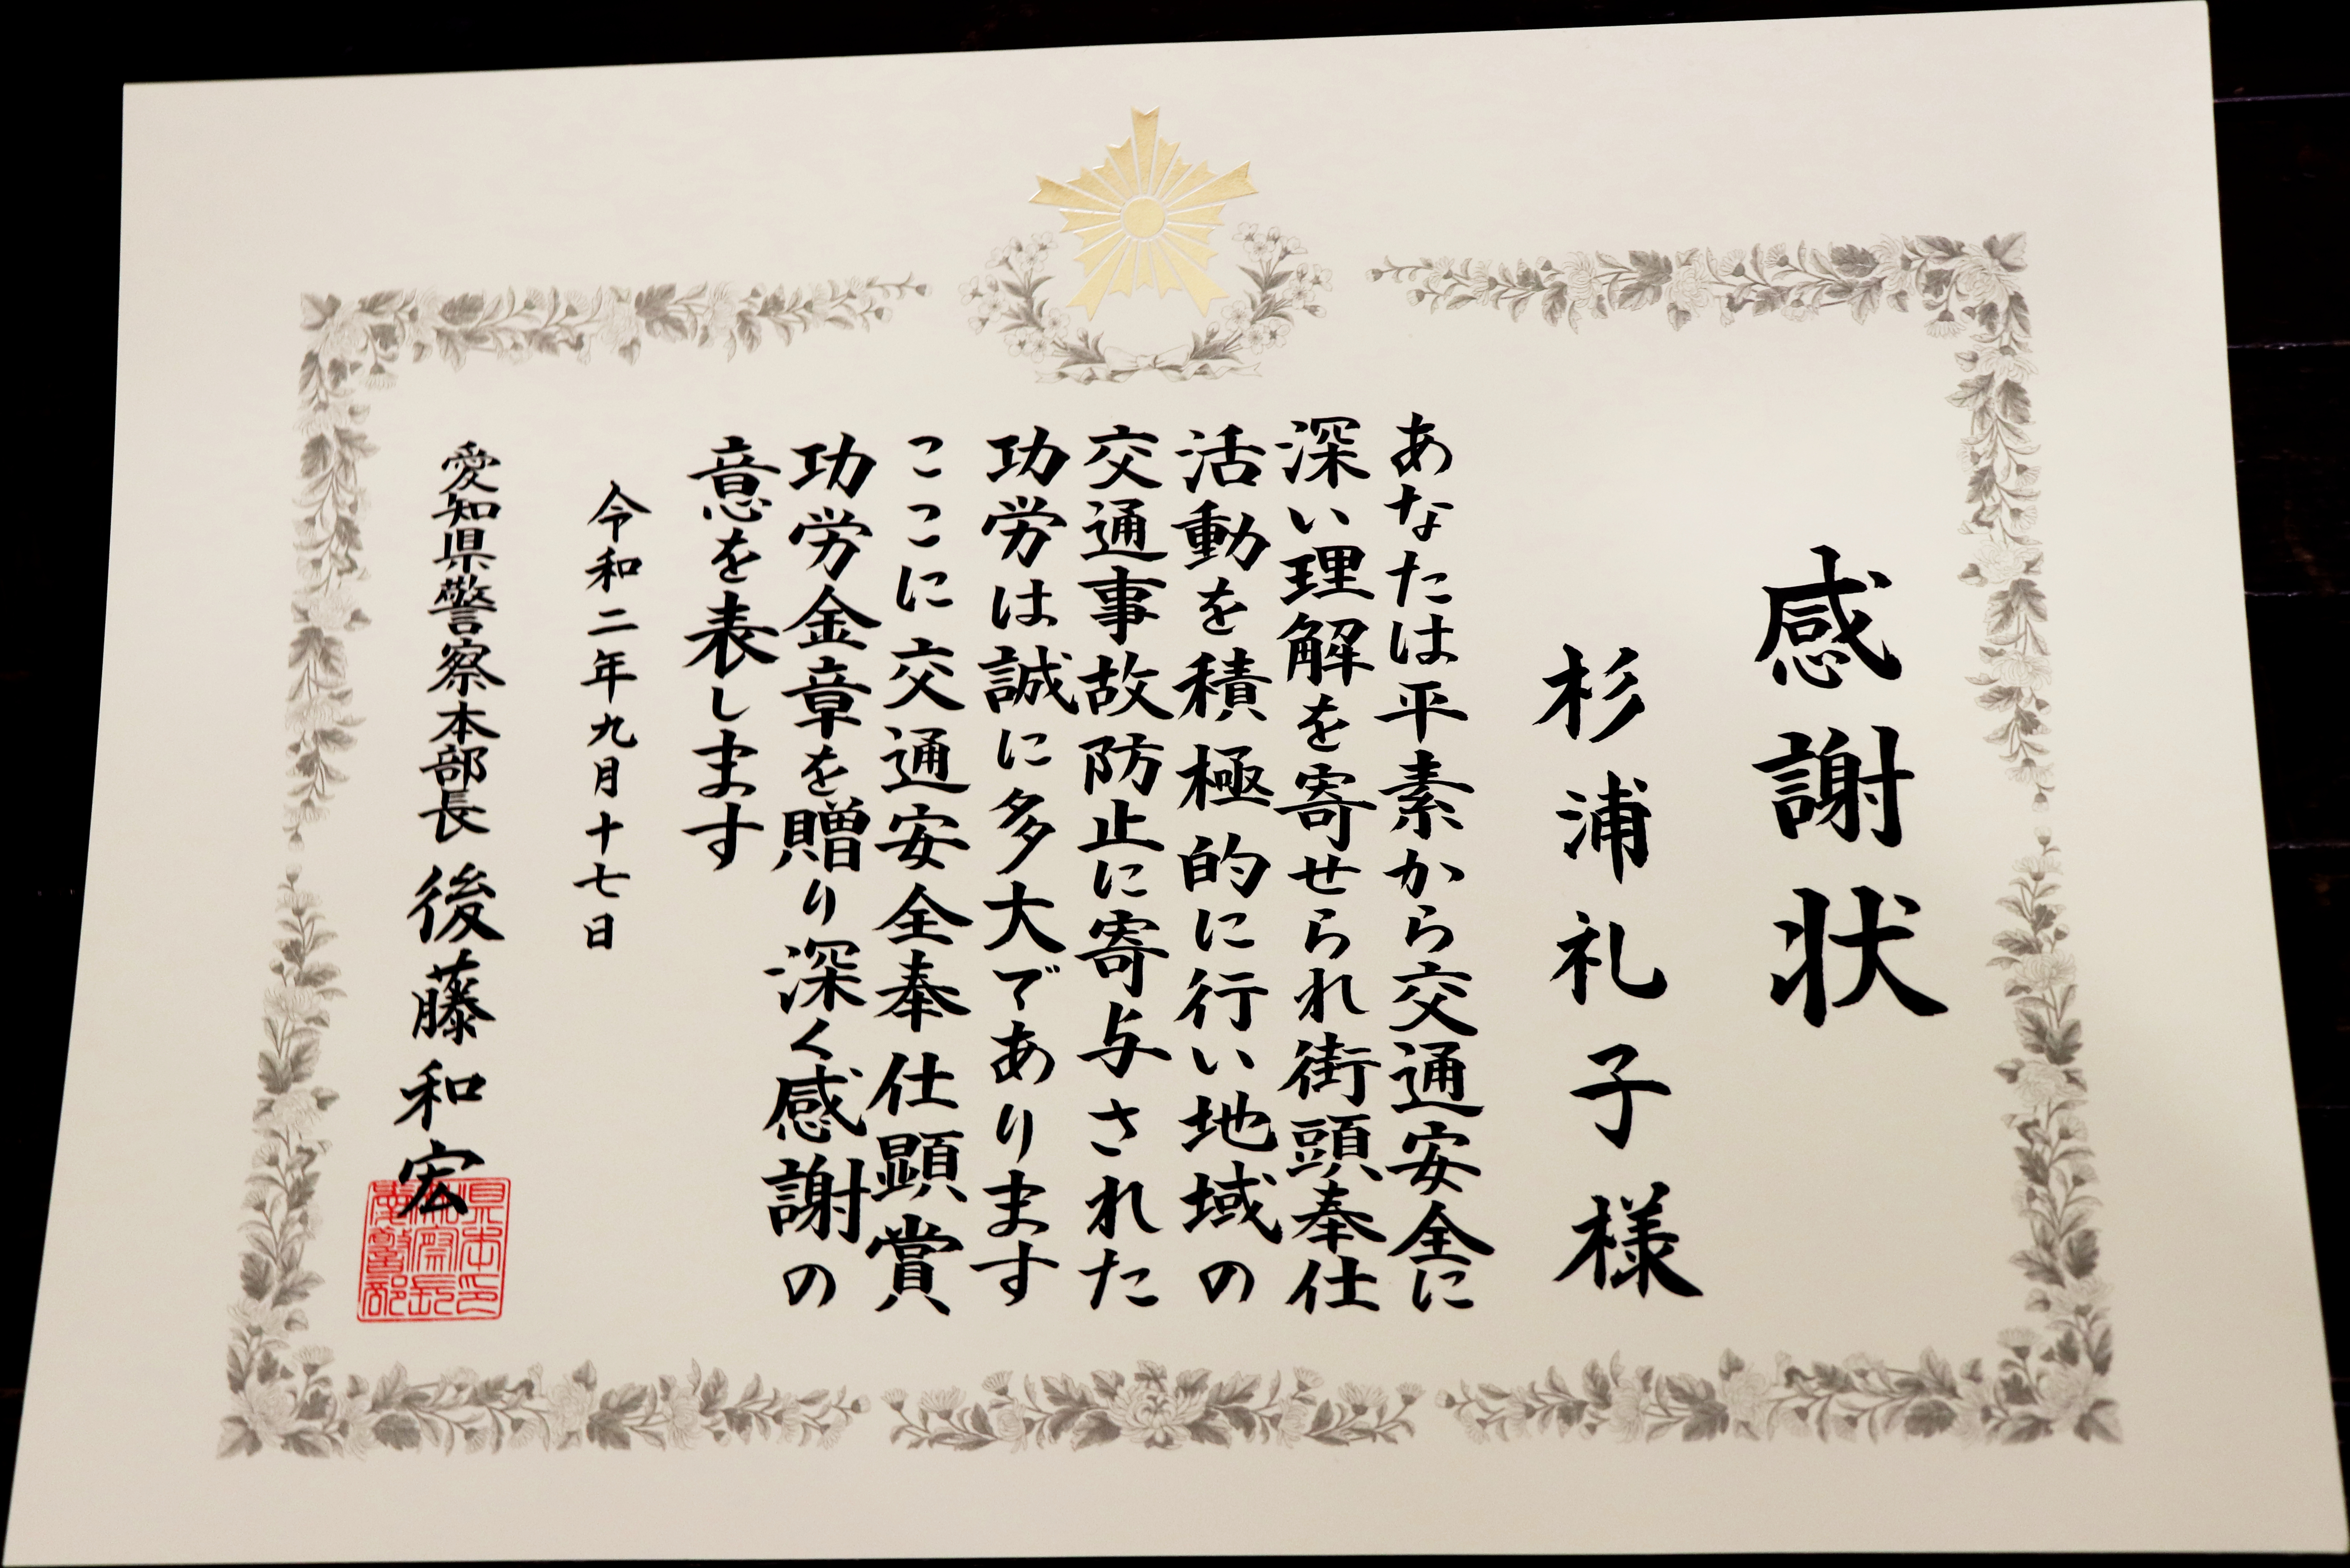 感謝状
杉浦礼子様
あなたは平素から交通安全に
深い理解を寄せられ街頭奉仕
活動を積極的に行い地域の
交通事故防止に寄与された
功労は誠に多大であります
ここに交通安全奉仕顕賞
功労金章を贈り深く感謝の
意を表します
令和二年九月十七日
愛知県警察本部長 後藤和宏